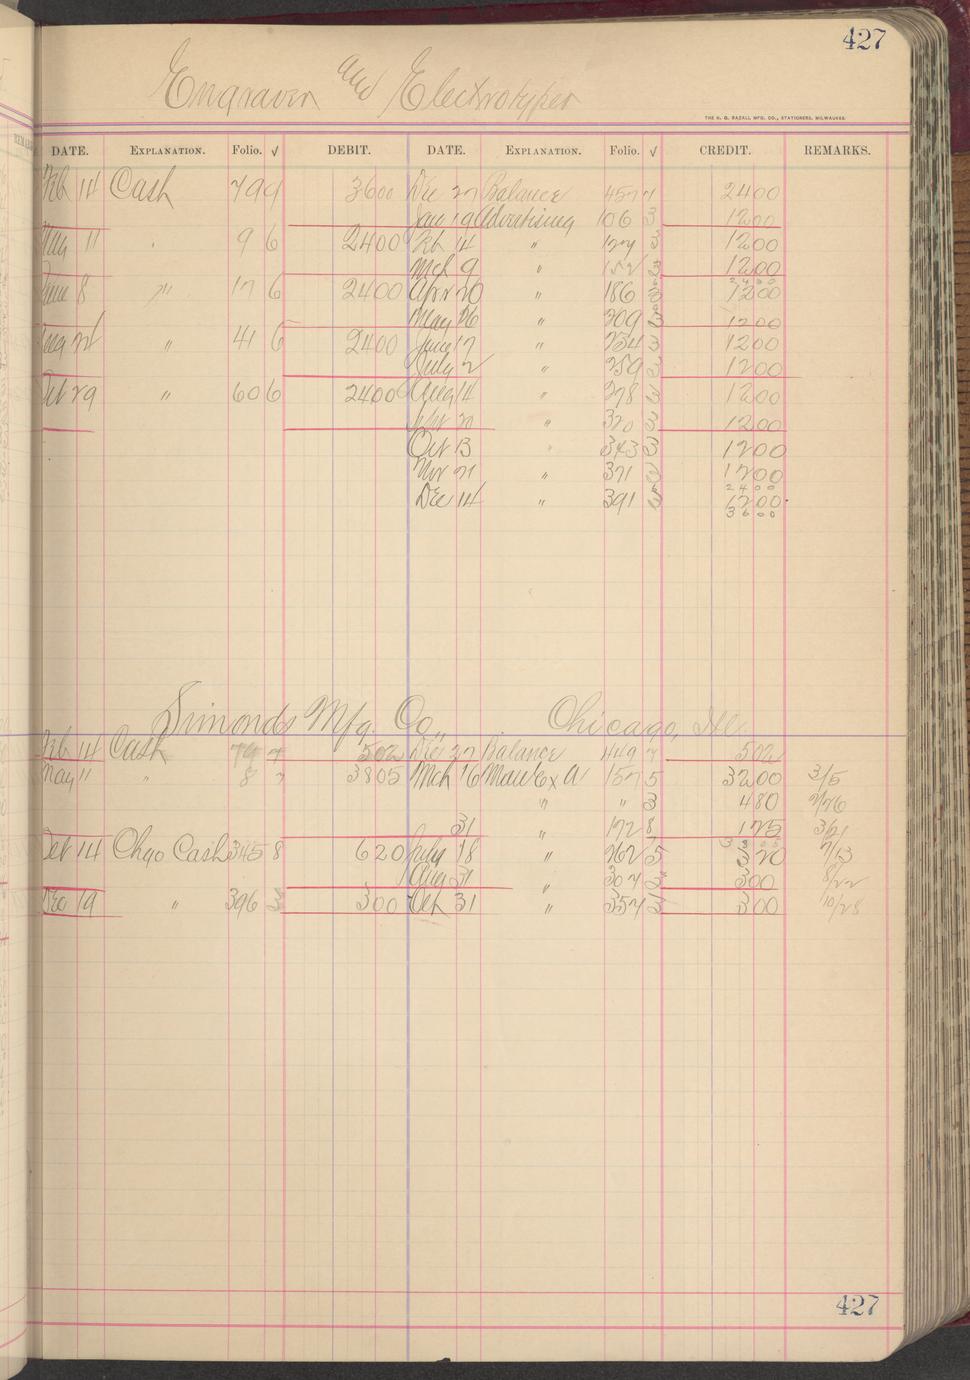 427
Engraver and Electrotyper
THE H. G. RAZALL MFG. CO., STATIONERS, MILWAUKEE.
DATE. EXPLANATION. Folio. √ DEBIT. DATE. EXPLANATION. Folio. √ CREDIT. REMARKS.
Feb 14 Cash 799 3600 Dec 27 Balance 457 7 2400
Jan 19 Advertising 106 3 1200
May 11 " 9 6 2400 Feb 14 " 127 3 1200
Mch 9 " 152 3 1200
2400
June 8 " 17 6 2400 Apr 20 " 186 3 1200
May 26 " 209 3 1200
Aug 21 " 41 6 2400 June 17 " 234 3 1200
July 2 " 259 3 1200
Oct 29 " 60 6 2400 Aug 14 " 278 3 1200
320 3 1200
Oct 13 " 343 3 1200
Nov 21 " 371 3 1200
2400
Dec 14 " 391 3 1200
3600
Simonds Mfg. Co., Chicago, Ill.
Feb 14 Cash 79 7 502 Dec 27 Balance 449 7 502
May 11 " 8 7 3805 Mch 16 Manl Ex A 157 5 3200 3/5
" " 3 480 2/26
31 " 172 8 125 3/21
Oct 14 Chgo Cash 345 8 620 July 18 " 262 5 320 7/13
Aug 31 " 307 3 300 8/22
Dec 19 " 396 3 300 Oct 31 " 357 3 300 10/28
427